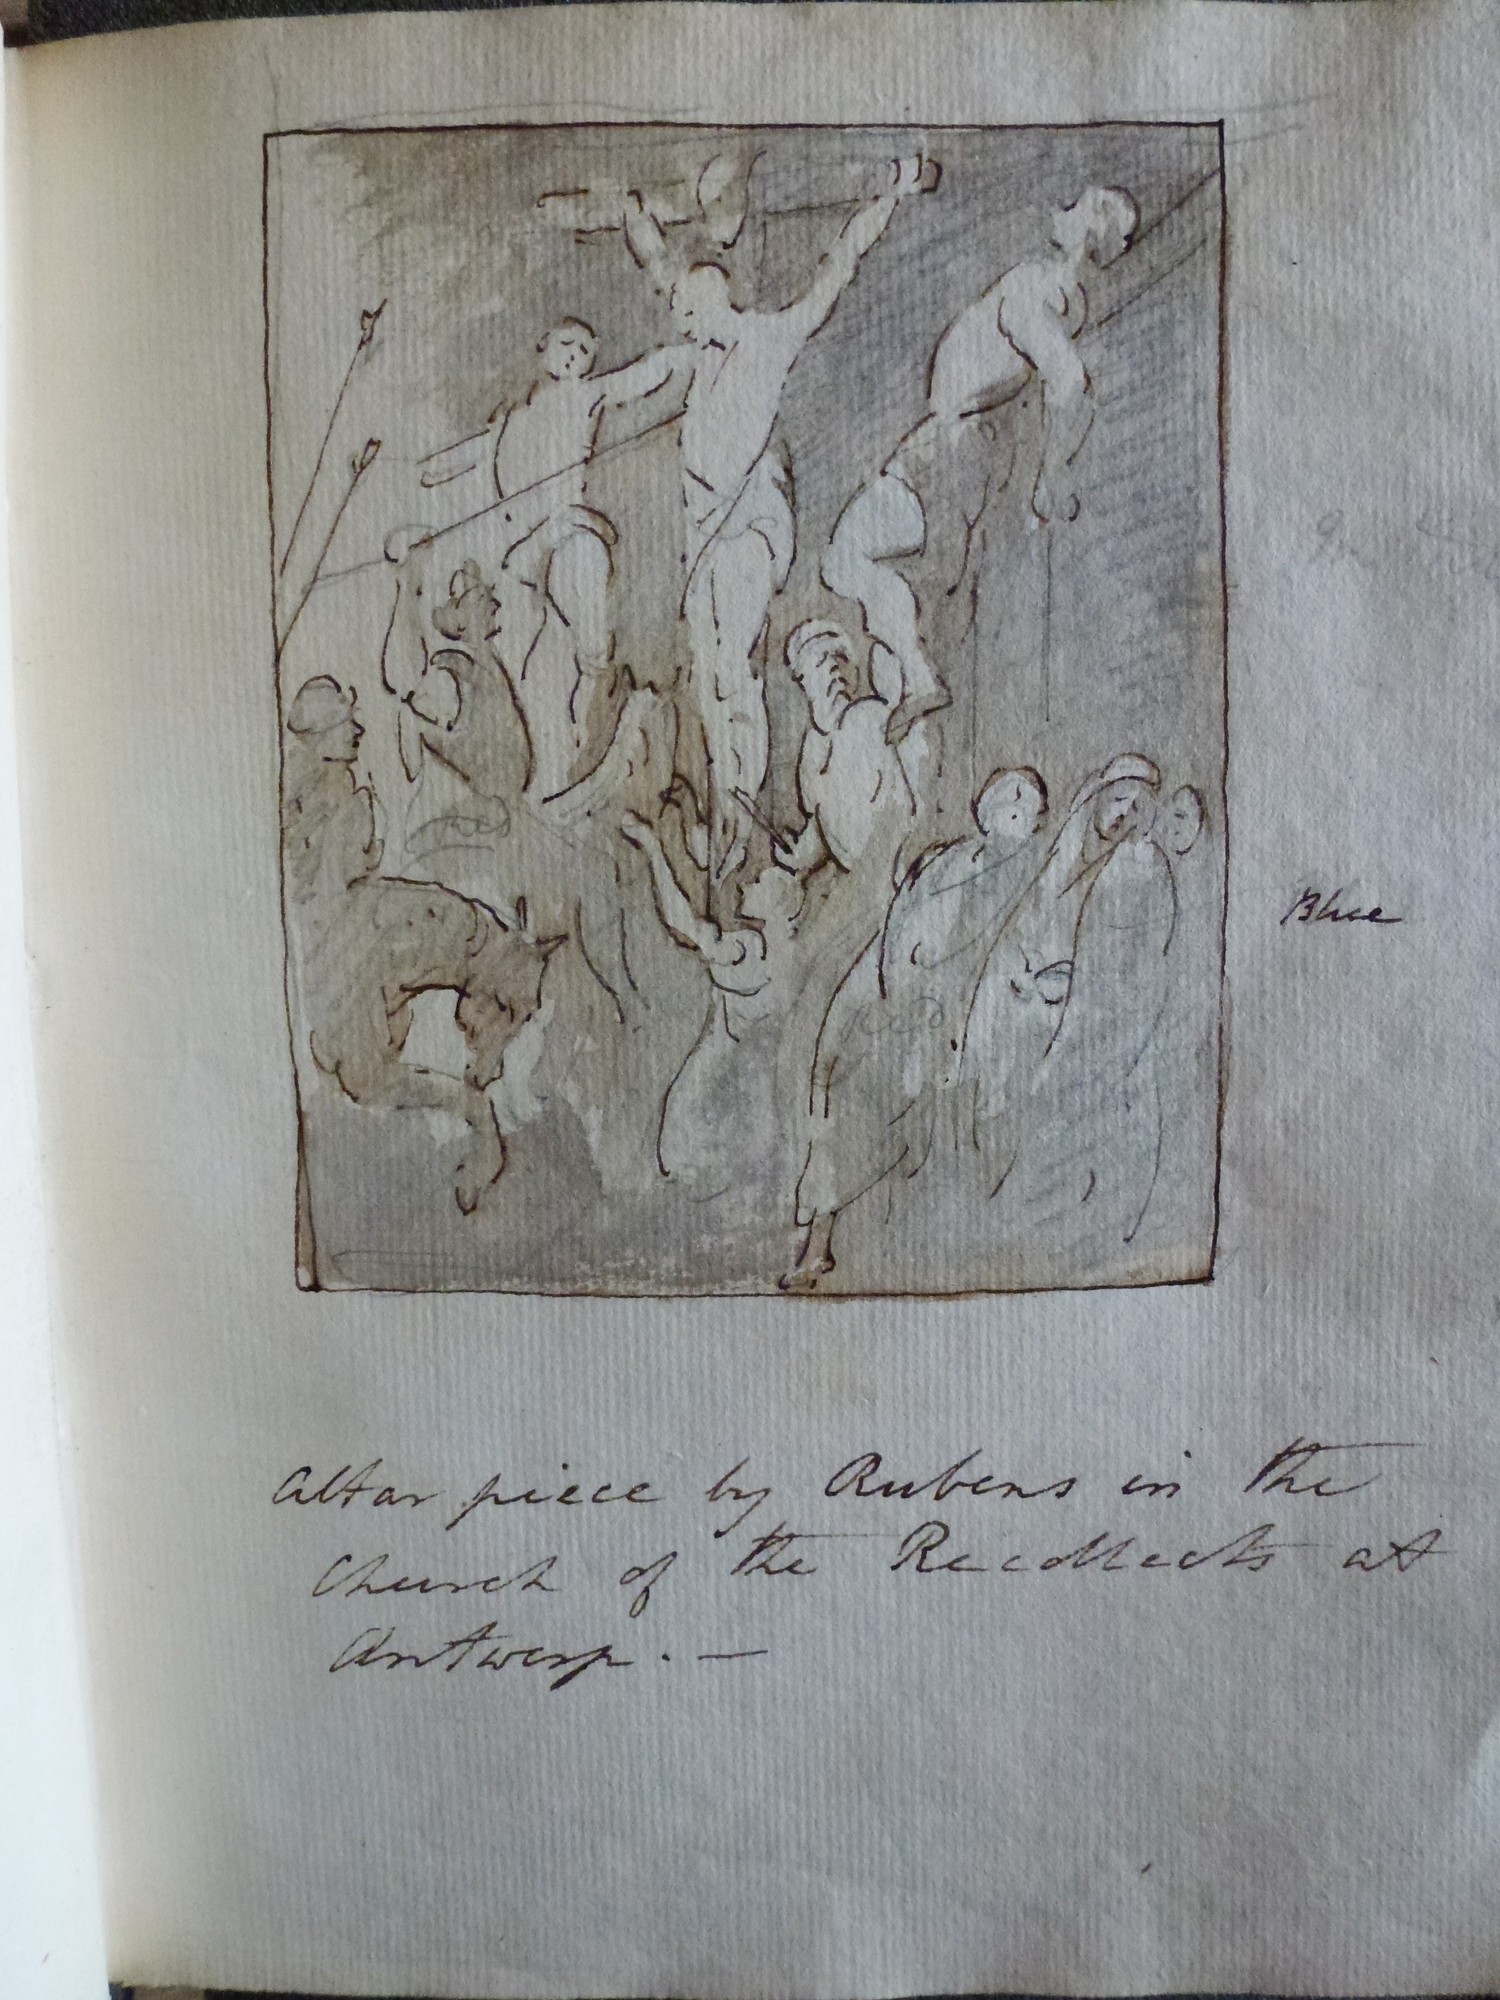 Red
Red
Blue
Altar piece by Rubens in the
Church of the Recollects at
Antwerp. —